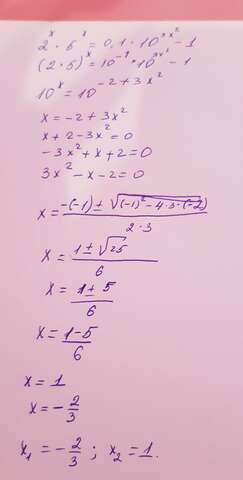 2^x · 5^x = 0,1 · 10^{3x^2 - 1}
(2 · 5)^x = 10^{-1} · 10^{3x^2 - 1}
10^x = 10^{-2 + 3x^2}
x = -2 + 3x^2
x + 2 - 3x^2 = 0
-3x^2 + x + 2 = 0
3x^2 - x - 2 = 0
x = \frac{-(-1) ± \sqrt{(-1)^2 - 4 · 3 · (-2)}}{2 · 3}
x = \frac{1 ± \sqrt{25}}{6}
x = \frac{1 ± 5}{6}
x = \frac{1 - 5}{6}
x = 1
x = -\frac{2}{3}
x_1 = -\frac{2}{3} ; x_2 = 1.